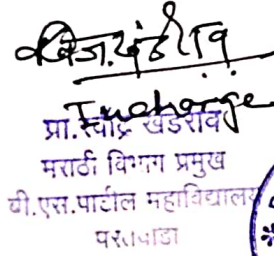 Incharge
प्रा. रवींद्र खंडेराव
मराठी विभाग प्रमुख
वी.एस.पाटील महाविद्यालय
परतवाडा